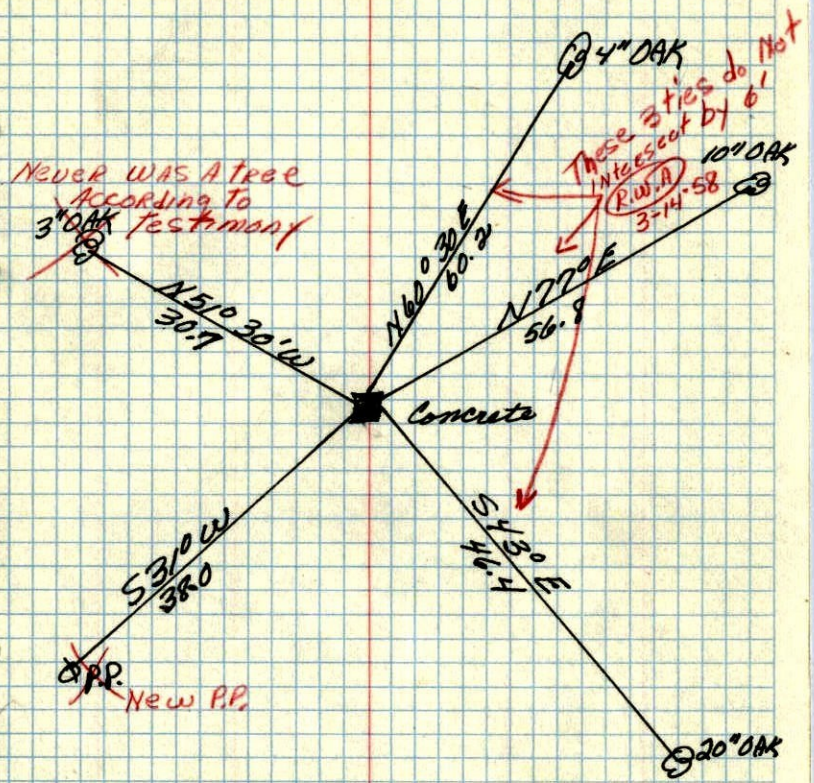 4" OAK
These 3 ties do Not
intersect by 6'
R.W.A
3-14-58
10" OAK
Never WAS A tree
According to
Testimony
3" OAK
N60° 30' E
60.2
N77° E
56.8
N51° 30' W
30.7
Concrete
S31° W
38.0
S43° E
46.4
P.P.
New P.P.
20" OAK